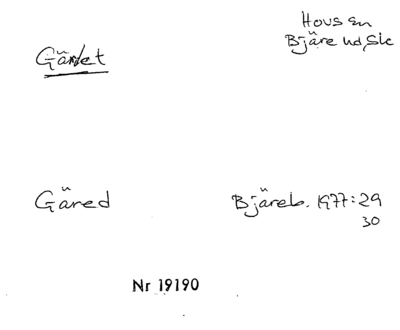 Gäret
Hovs sn
Bjäre hd, Sk
Gäred
Bjäreb. 1977:29
30
Nr 19190